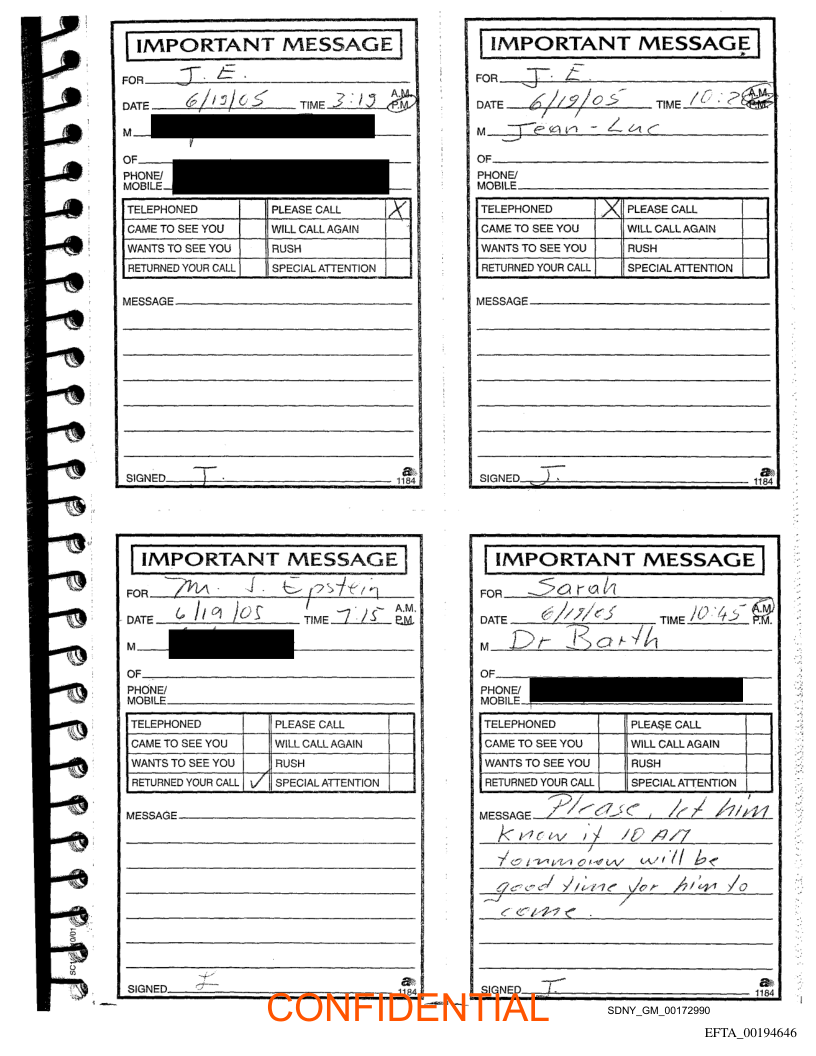 IMPORTANT MESSAGE
FOR J. E.
DATE 6/19/05 TIME 3:19 A.M. P.M.
M
OF
PHONE/
MOBILE
TELEPHONED PLEASE CALL X
CAME TO SEE YOU WILL CALL AGAIN
WANTS TO SEE YOU RUSH
RETURNED YOUR CALL SPECIAL ATTENTION
MESSAGE
SIGNED J.
1184
IMPORTANT MESSAGE
FOR J. E.
DATE 6/19/05 TIME A.M. P.M.
M Jean-Luc
OF
PHONE/
MOBILE
TELEPHONED X PLEASE CALL
CAME TO SEE YOU WILL CALL AGAIN
WANTS TO SEE YOU RUSH
RETURNED YOUR CALL SPECIAL ATTENTION
MESSAGE
SIGNED J.
1184
IMPORTANT MESSAGE
FOR Mr. J. Epstein
DATE 6/19/05 TIME 7:15 A.M. P.M.
M
OF
PHONE/
MOBILE
TELEPHONED PLEASE CALL
CAME TO SEE YOU WILL CALL AGAIN
WANTS TO SEE YOU RUSH
RETURNED YOUR CALL ✓ SPECIAL ATTENTION
MESSAGE
SIGNED
1184
IMPORTANT MESSAGE
FOR Sarah
DATE 6/19/05 TIME 10:45 A.M. P.M.
M Dr Barth
OF
PHONE/
MOBILE
TELEPHONED PLEASE CALL
CAME TO SEE YOU WILL CALL AGAIN
WANTS TO SEE YOU RUSH
RETURNED YOUR CALL SPECIAL ATTENTION
MESSAGE Please, let him
know if 10 AM
tommorow will be
good time for him to
come.
SIGNED J.
1184
CONFIDENTIAL
SDNY_GM_00172990
EFTA_00194646